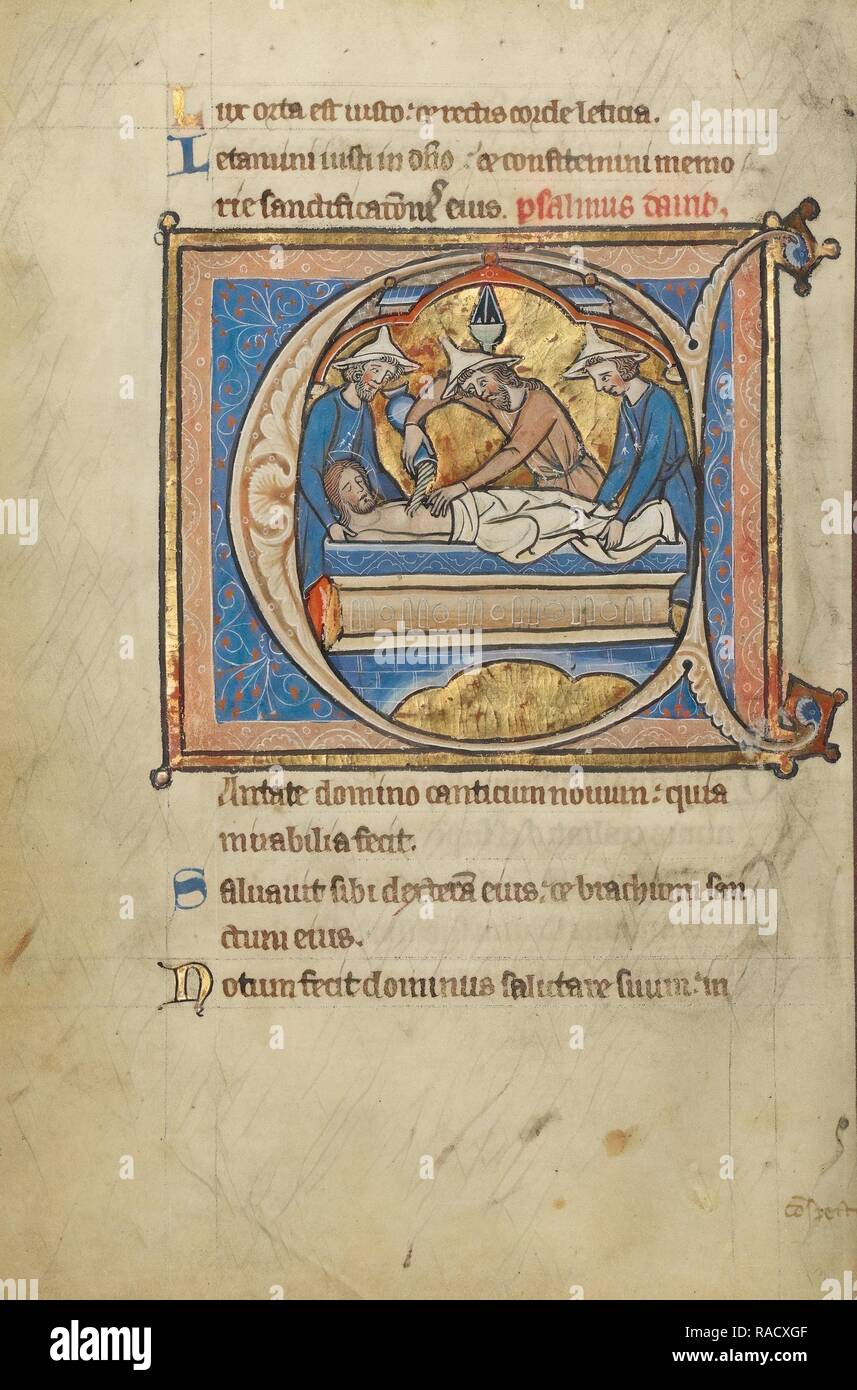 Lux orta est iusto: et rectis corde leticia.
Letamini iusti in dño: et confitemini memo
rie sanctificatōnis eius. psalmus dauid.
Cantate domino canticum nouum: quia
mirabilia fecit.
Saluauit sibi dextera eius: et brachium san
ctum eius.
Notum fecit dominus salutare suum: in
alamy
a
alamy
a
alamy
a
alamy
Image ID: RACXGF
www.alamy.com